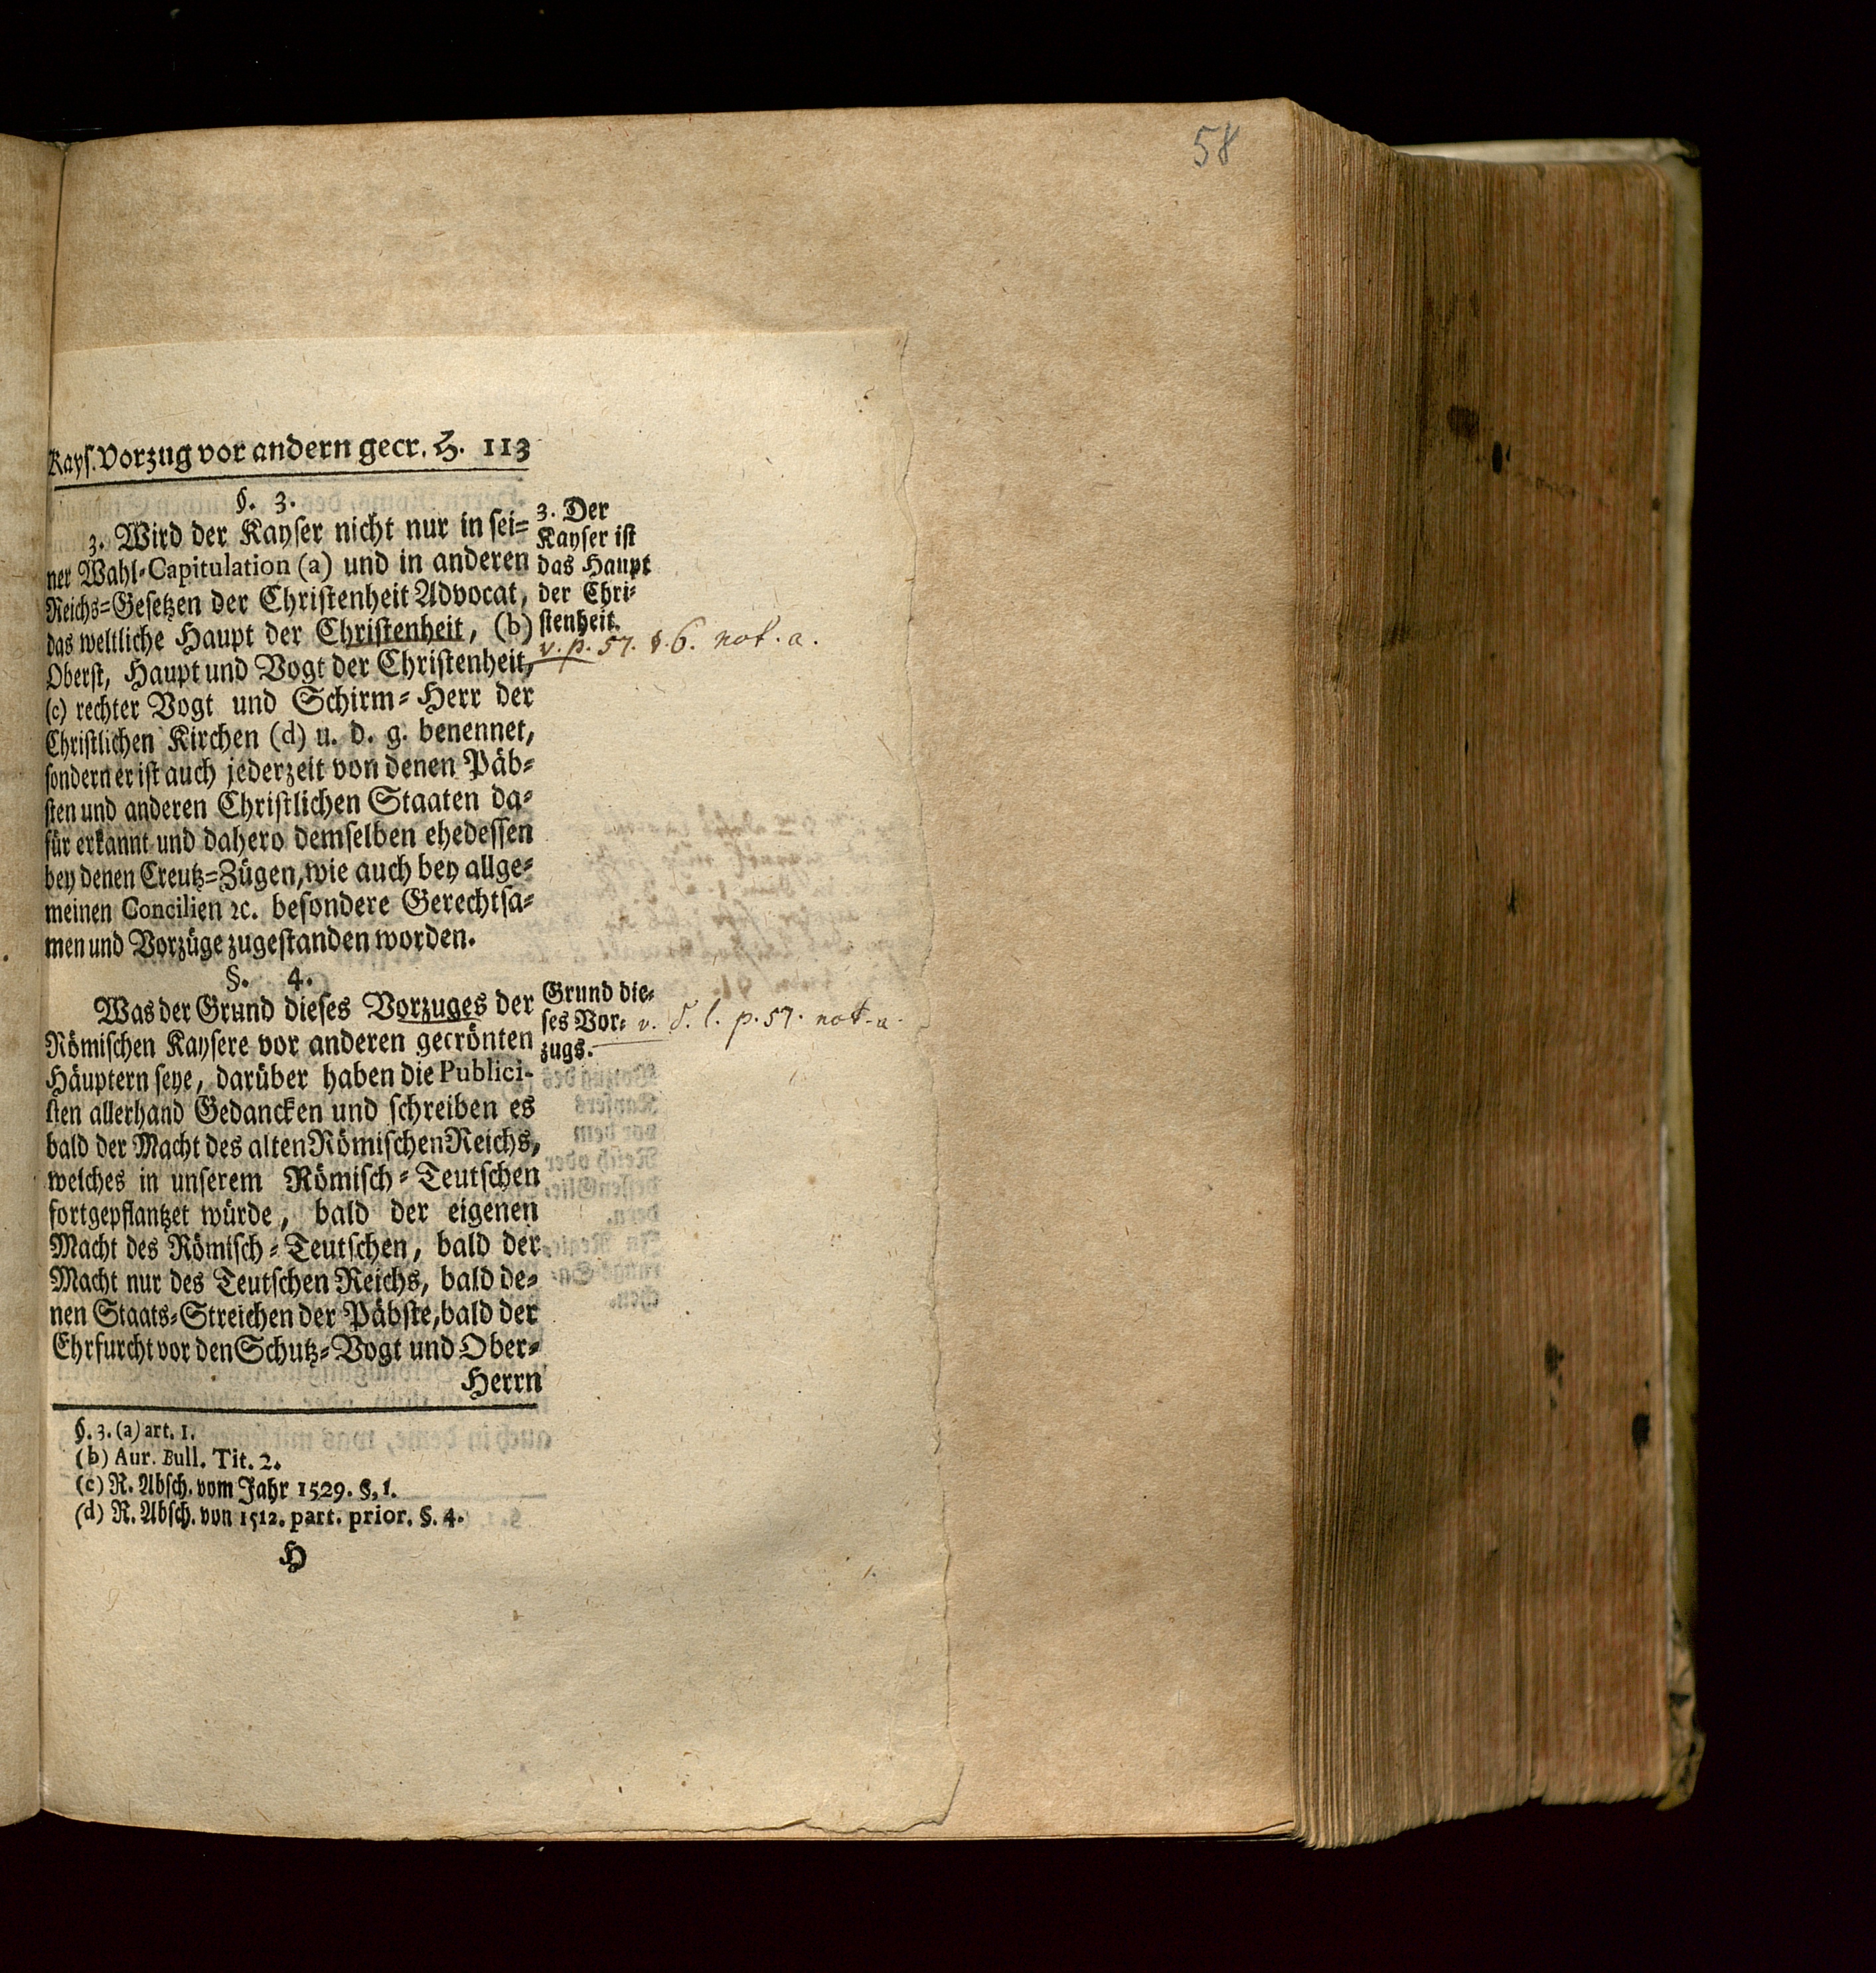 58
Kays. Vorzug vor andern gecr. H. 113
§. 3.
3. Wird der Kayser nicht nur in sei=
ner Wahl-Capitulation (a) und in anderen
Reichs=Gesetzen der Christenheit Advocat,
das weltliche Haupt der Christenheit, (b)
Oberst, Haupt und Vogt der Christenheit,
(c) rechter Vogt und Schirm=Herr der
Christlichen Kirchen (d) u. d. g. benennet,
sondern er ist auch jederzeit von denen Päb=
sten und anderen Christlichen Staaten da=
für erkannt und dahero demselben ehedessen
bey denen Creutz=Zügen, wie auch bey allge=
meinen Concilien ꝛc. besondere Gerechtsa=
men und Vorzüge zugestanden worden.
3. Der
Kayser ist
das Haupt
der Chri=
stenheit.
v. p. 57. §. 6. not. a.
§. 4.
Was der Grund dieses Vorzuges der
Römischen Kaysere vor anderen gecrönten
Häuptern seye, darüber haben die Publici-
sten allerhand Gedancken und schreiben es
bald der Macht des alten Römischen Reichs,
welches in unserem Römisch=Teutschen
fortgepflantzet würde, bald der eigenen
Macht des Römisch=Teutschen, bald der
Macht nur des Teutschen Reichs, bald de=
nen Staats=Streichen der Päbste, bald der
Ehrfurcht vor den Schutz=Vogt und Ober=
Herrn
Grund die=
ses Vor=
zugs.
v. d. l. p. 57. not. a.
§. 3. (a) art. 1.
(b) Aur. Bull. Tit. 2.
(c) R. Absch. vom Jahr 1529. §. 1.
(d) R. Absch. von 1512. part. prior. §. 4.
H